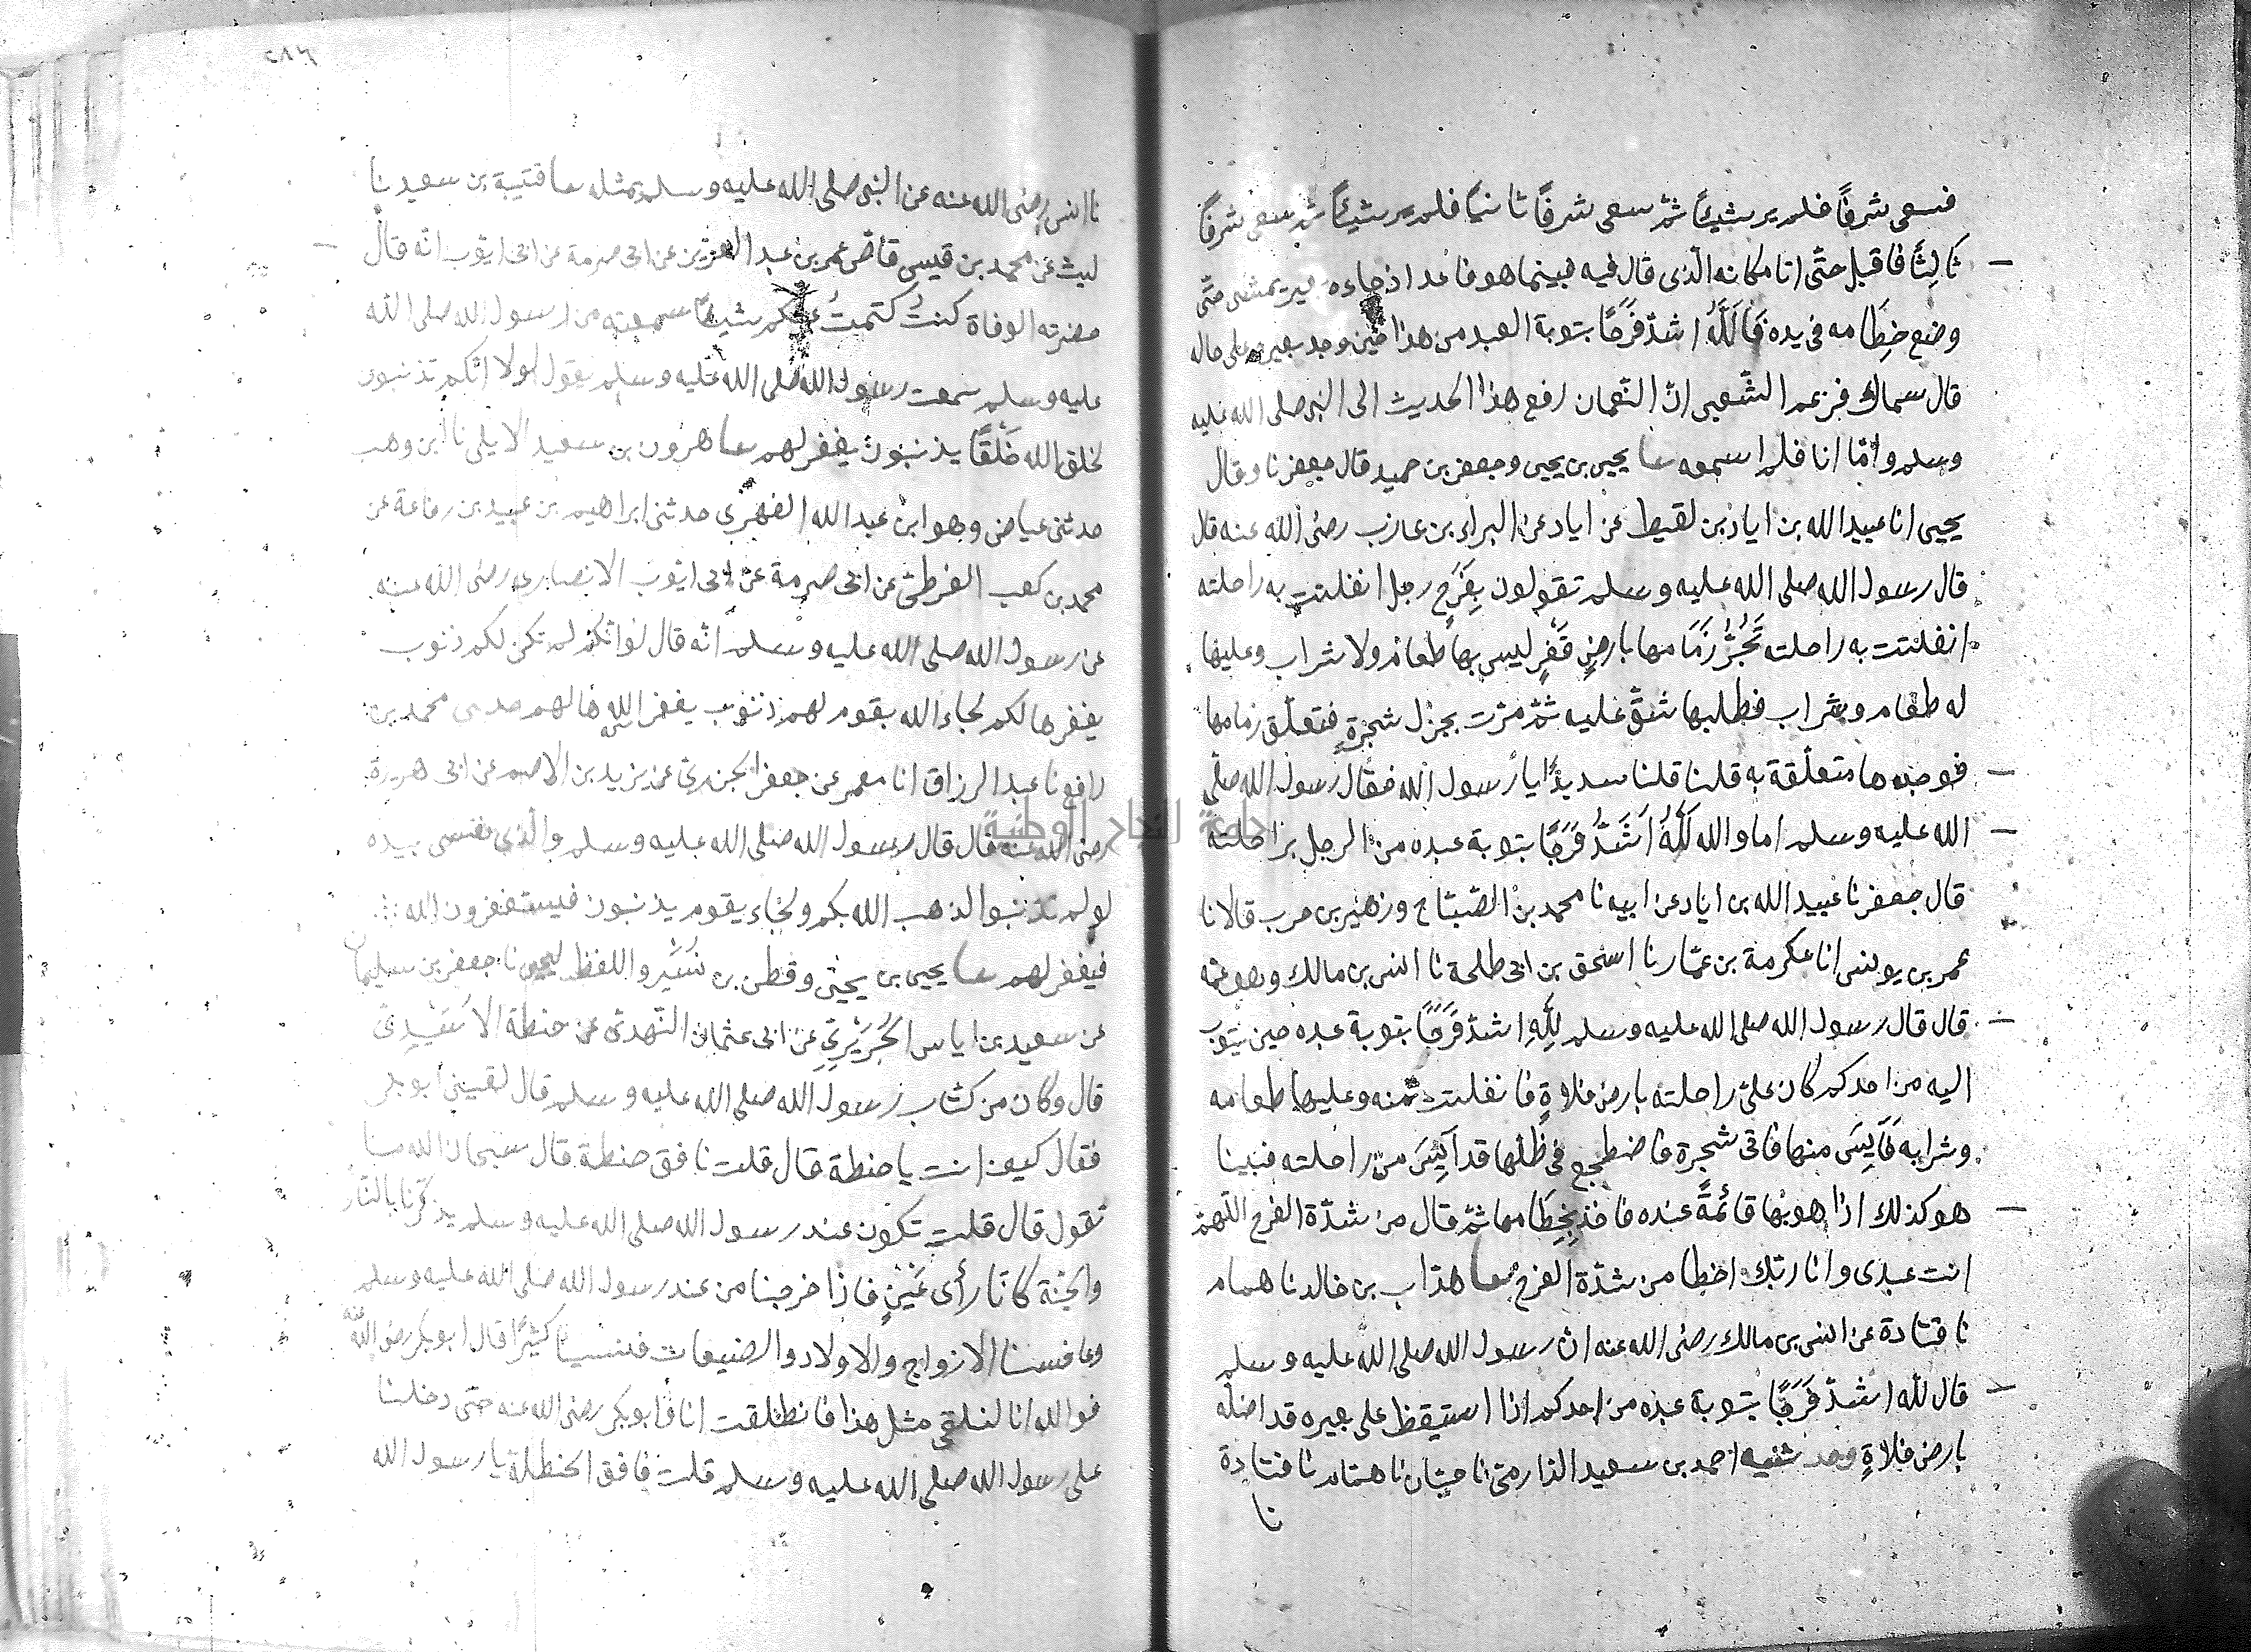 فسعى شرفًا فلم ير شيئًا ثم سعى شرفًا ثانيًا فلم ير شيئًا ثم سعى شرفًا
ثالثًا فاقبل حتّى اتا مكانه الّذى قال فيه فبينما هو قاعد اذ جاءه بعيره يمشى حتّى
وضع خِطَامه فى يده فَاَللَّهُ اشدّ فَرَحًا بتوبة العبد من هذا حين وجد بعيره على حاله
قال سماك فزعم الشّعبى انّ النّعمان رفع هذا الحديث الى النبى صلى الله عليه
وسلم وامّا انا فلم اسمعه ـا يحيى بن يحيى وجعفر بن حميد قال جعفر نا وقال
يحيى انا عبيد الله بن اياد بن لقيط عن اياد عن البراء بن عازب رضى الله عنه قال
قال رسول الله صلى الله عليه وسلم تقولون بِفَرَحِ رجل انفلتت به راحلته
انفلتت به راحلته تَجُرُّ زِمَامها بارضٍ قَفْرٍ ليس بها طعام ولا شراب وعليها
له طعام وشراب فطلبها شقّ عليه ثمّ مرّت بجزل شجرةٍ فتعلّق زمامها
فوجدها متعلّقة به قلنا قلنا سديدًا يا رسول الله فقال رسول الله صلّى
الله عليه وسلم اما والله لَلّٰهُ اَشَدُّ فَرَحًا بتوبة عبده من الرجل براحلته
قال جعفر نا عبيد الله بن اياد عن ابيه نا محمد بن الصّبّاح وزهير بن حرب قالا نا
عمر بن يونس انا عكرمة بن عمّار نا اسحق بن ابى طلحة نا انس بن مالك وهو عمّه
قال قال رسول الله صلى الله عليه وسلم لَلّٰهِ اشدّ فَرَحًا بتوبة عبده حين يتوب
اليه من احدكم كان على راحلته بارض فلاةٍ فانفلتت منه وعليها طعامه
وشرابه فَاَيِسَ منها فاتى شجرة فاضطجع فى ظلّها قد اَيِسَ من راحلته فبينا
هو كذلك اذا هو بها قائمةً عنده فاخذ بِخِطَامها ثمّ قال من شدّة الفرح اللّهمّ
انت عبدى وانا ربّك اخطا من شدّة الفرح ـا هدّاب بن خالد نا همام
نا قتادة عن انس بن مالك رضى الله عنه انّ رسول الله صلى الله عليه وسلم
قال لله اشدّ فَرَحًا بتوبة عبده من احدكم اذا استيقظ على بعيره قد اضلّه
بارض فلاةٍ وحدثنيه احمد بن سعيد الدّارمّى نا حبّان نا همّام نا قتادة
نا
٢٨٦
نا انس رضى الله عنه عن النبى صلى الله عليه وسلم بمثله ـا قتيبة بن سعيد نا
ليث عن محمد بن قيس قاصّ عمر بن عبد العزيز عن ابى صرمة عن ابى ايّوب انّه قال
حضرته الوفاة كنتُ كتمتُ عنكم شيئًا سمعته من رسول الله صلى الله
عليه وسلم سمعت رسول الله صلى الله عليه وسلم يقول لولا انّكم تذنبون
لخلق الله خَلْقًا يذنبون يغفر لهم ـا هرون بن سعيد الايلى نا ابن وهب
حدثنى عياض وهو ابن عبد الله الفهرى حدثنى ابراهيم بن عبيد بن رفاعة عن
محمد بن كعب القرظى عن ابى صرمة عن ابى ايّوب الانصارى رضى الله عنه
عن رسول الله صلى الله عليه وسلم انّه قال لو انّكم لم تكن لكم ذنوب
يغفرها لكم لجاء الله بقوم لهم ذنوب يغفر الله ها لهم حدثنى محمد بن
رافع نا عبد الرزاق انا معمر عن جعفر الجزرى عن يزيد بن الاصم عن ابى هريرة
رضى الله عنه قال قال رسول الله صلى الله عليه وسلم والّذى نفسى بيده
لو لم تذنبوا لذهب الله بكم ولجاء بقوم يذنبون فيستغفرون الله
فيغفر لهم ـا يحيى بن يحيى وقطن بن نُسَيْر واللفظ ليحيى نا جعفر بن سليمان
عن سعيد بن اياس الجُرَيْرِىِّ عن ابى عثمان النّهدى عن حنظلة الاُسَيْدِىّ
قال وكان من كتّاب رسول الله صلى الله عليه وسلم قال لقينى ابو بكر
فقال كيف انت يا حنظلة قال قلت نافق حنظلة قال سبحان الله ما
تقول قال قلت تكون عند رسول الله صلى الله عليه وسلم يذكّرنا بالنّار
والجنّة كانّا رأى عَيْنٍ فاذا خرجنا من عند رسول الله صلى الله عليه وسلم
وعافسنا الازواج والاولاد والضيعات فنسينا كثيرًا قال ابو بكر رضى الله عنه
فوالله انا لنلقى مثل هذا فانطلقت انا وابو بكر رضى الله عنه حتى دخلنا
على رسول الله صلى الله عليه وسلم قلت نافق الحنظلة يا رسول الله
جامعة النجاح الوطنية